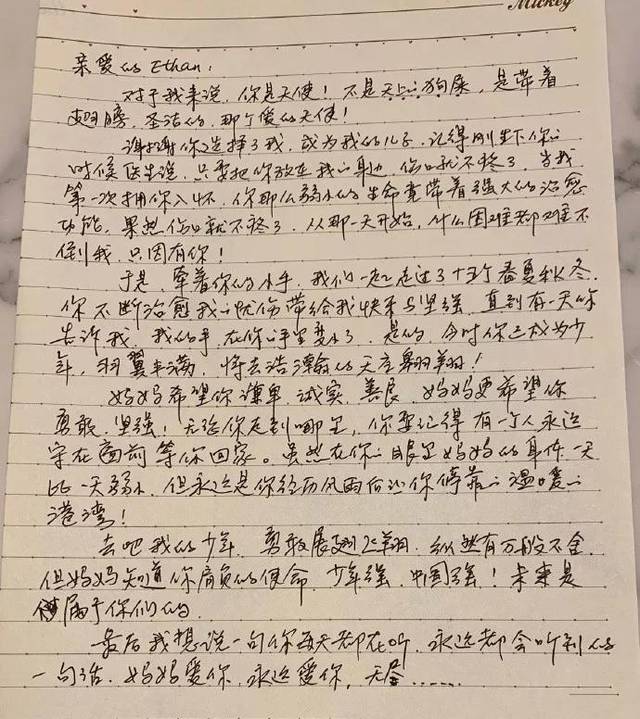 Mickey
亲爱的Ethan:
对于我来说,你是天使!不是天上的狗屎,是带着
翅膀、圣洁的,那个爱的天使!
谢谢你选择了我,成为我的儿子,记得刚生下你的
时候医生说,只要把你放在我的身边,伤口就不疼了,当我
第一次拥你入怀,你那么弱小的生命竟带着强大的治愈
功能,果然伤口就不疼了,从那一天开始,什么困难都难不
倒我,只因有你!
于是,牵着你的小手,我们一起走过了十五个春夏秋冬,
你不断治愈我的忧伤带给我快乐与坚强,直到有一天你
告诉我,我的手,在你的手里变小了,是的,今时你已成为少
年,羽翼丰满,将去浩瀚的天空翱翔!
妈妈希望你谦卑、诚实、善良,妈妈更希望你
勇敢、坚强!无论你走到哪里,你要记得有一个人永远
守在窗前等你回家。虽然在你的眼里妈妈的身体一天
比一天弱小,但永远是你经历风雨后让你停靠的温暖的
港湾!
去吧我的少年,勇敢展翅飞翔,纵然有万般不舍,
但妈妈知道你肩负的使命,少年强,中国强!未来是
属于你们的
最后我想说一句你每天都在听,永远都会听到的
一句话,妈妈爱你,永远爱你,无尽......